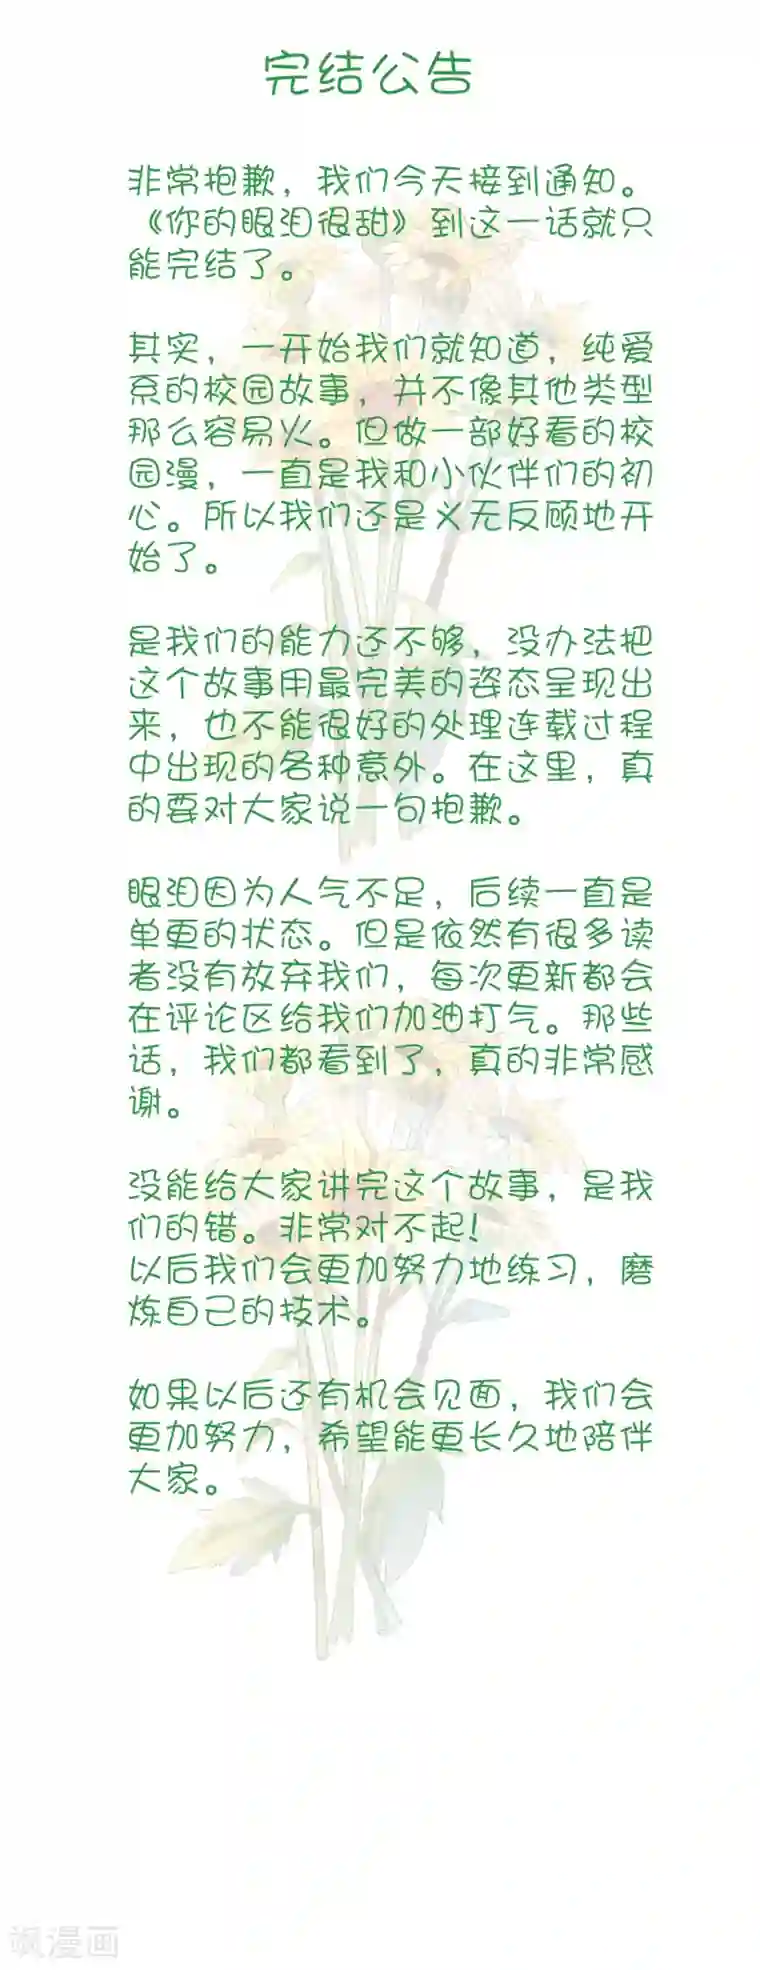 完结公告
非常抱歉，我们今天接到通知。
《你的眼泪很甜》到这一话就只
能完结了。
其实，一开始我们就知道，纯爱
系的校园故事，并不像其他类型
那么容易火。但做一部好看的校
园漫，一直是我和小伙伴们的初
心。所以我们还是义无反顾地开
始了。
是我们的能力还不够，没办法把
这个故事用最完美的姿态呈现出
来，也不能很好的处理连载过程
中出现的各种意外。在这里，真
的要对大家说一句抱歉。
眼泪因为人气不足，后续一直是
单更的状态。但是依然有很多读
者没有放弃我们，每次更新都会
在评论区给我们加油打气。那些
话，我们都看到了，真的非常感
谢。
没能给大家讲完这个故事，是我
们的错。非常对不起！
以后我们会更加努力地练习，磨
炼自己的技术。
如果以后还有机会见面，我们会
更加努力，希望能更长久地陪伴
大家。
飒漫画